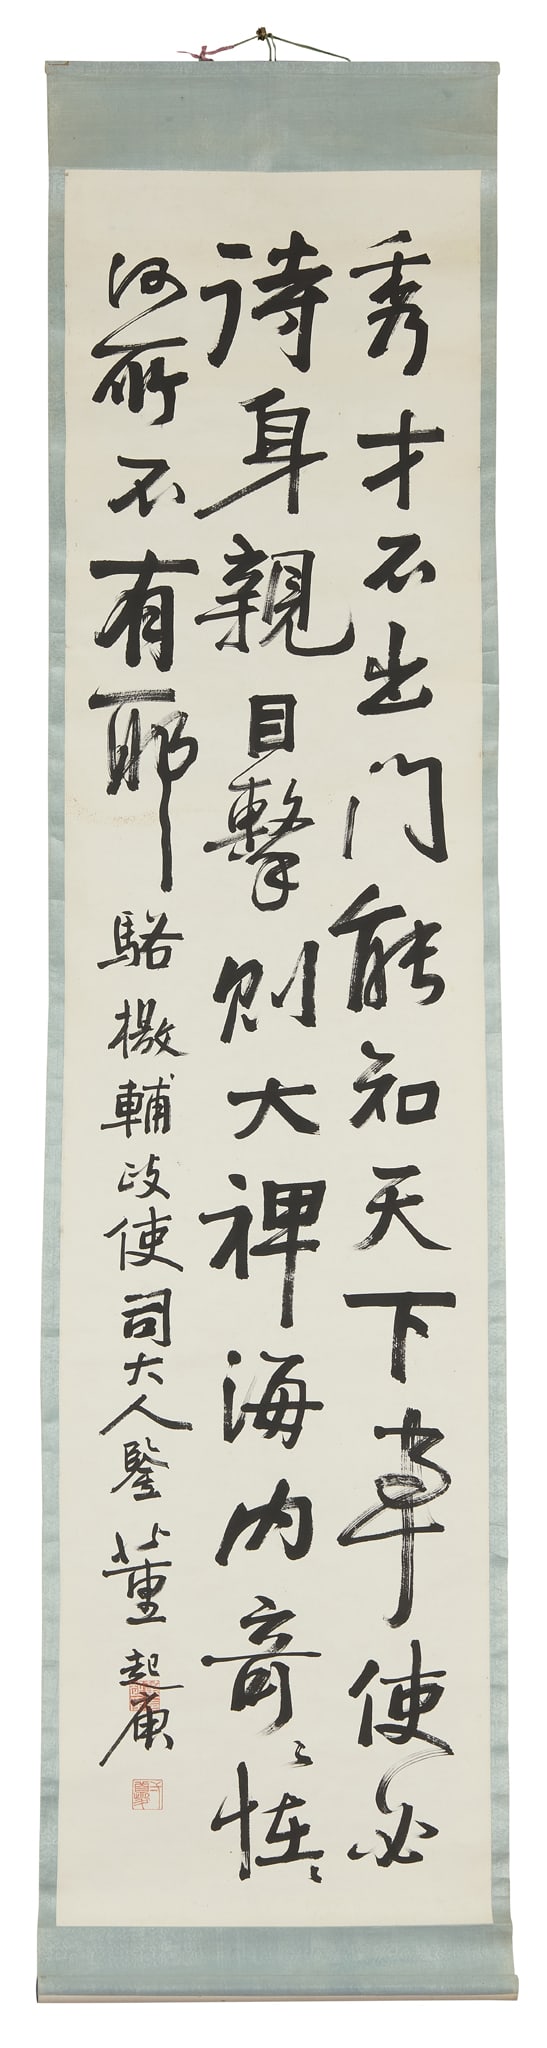 秀才不出門能知天下事使必
詩身親目擊則大禆海内奇〻怪〻
何所不有耶 駱檄輔政使司大人鑒 董起庚